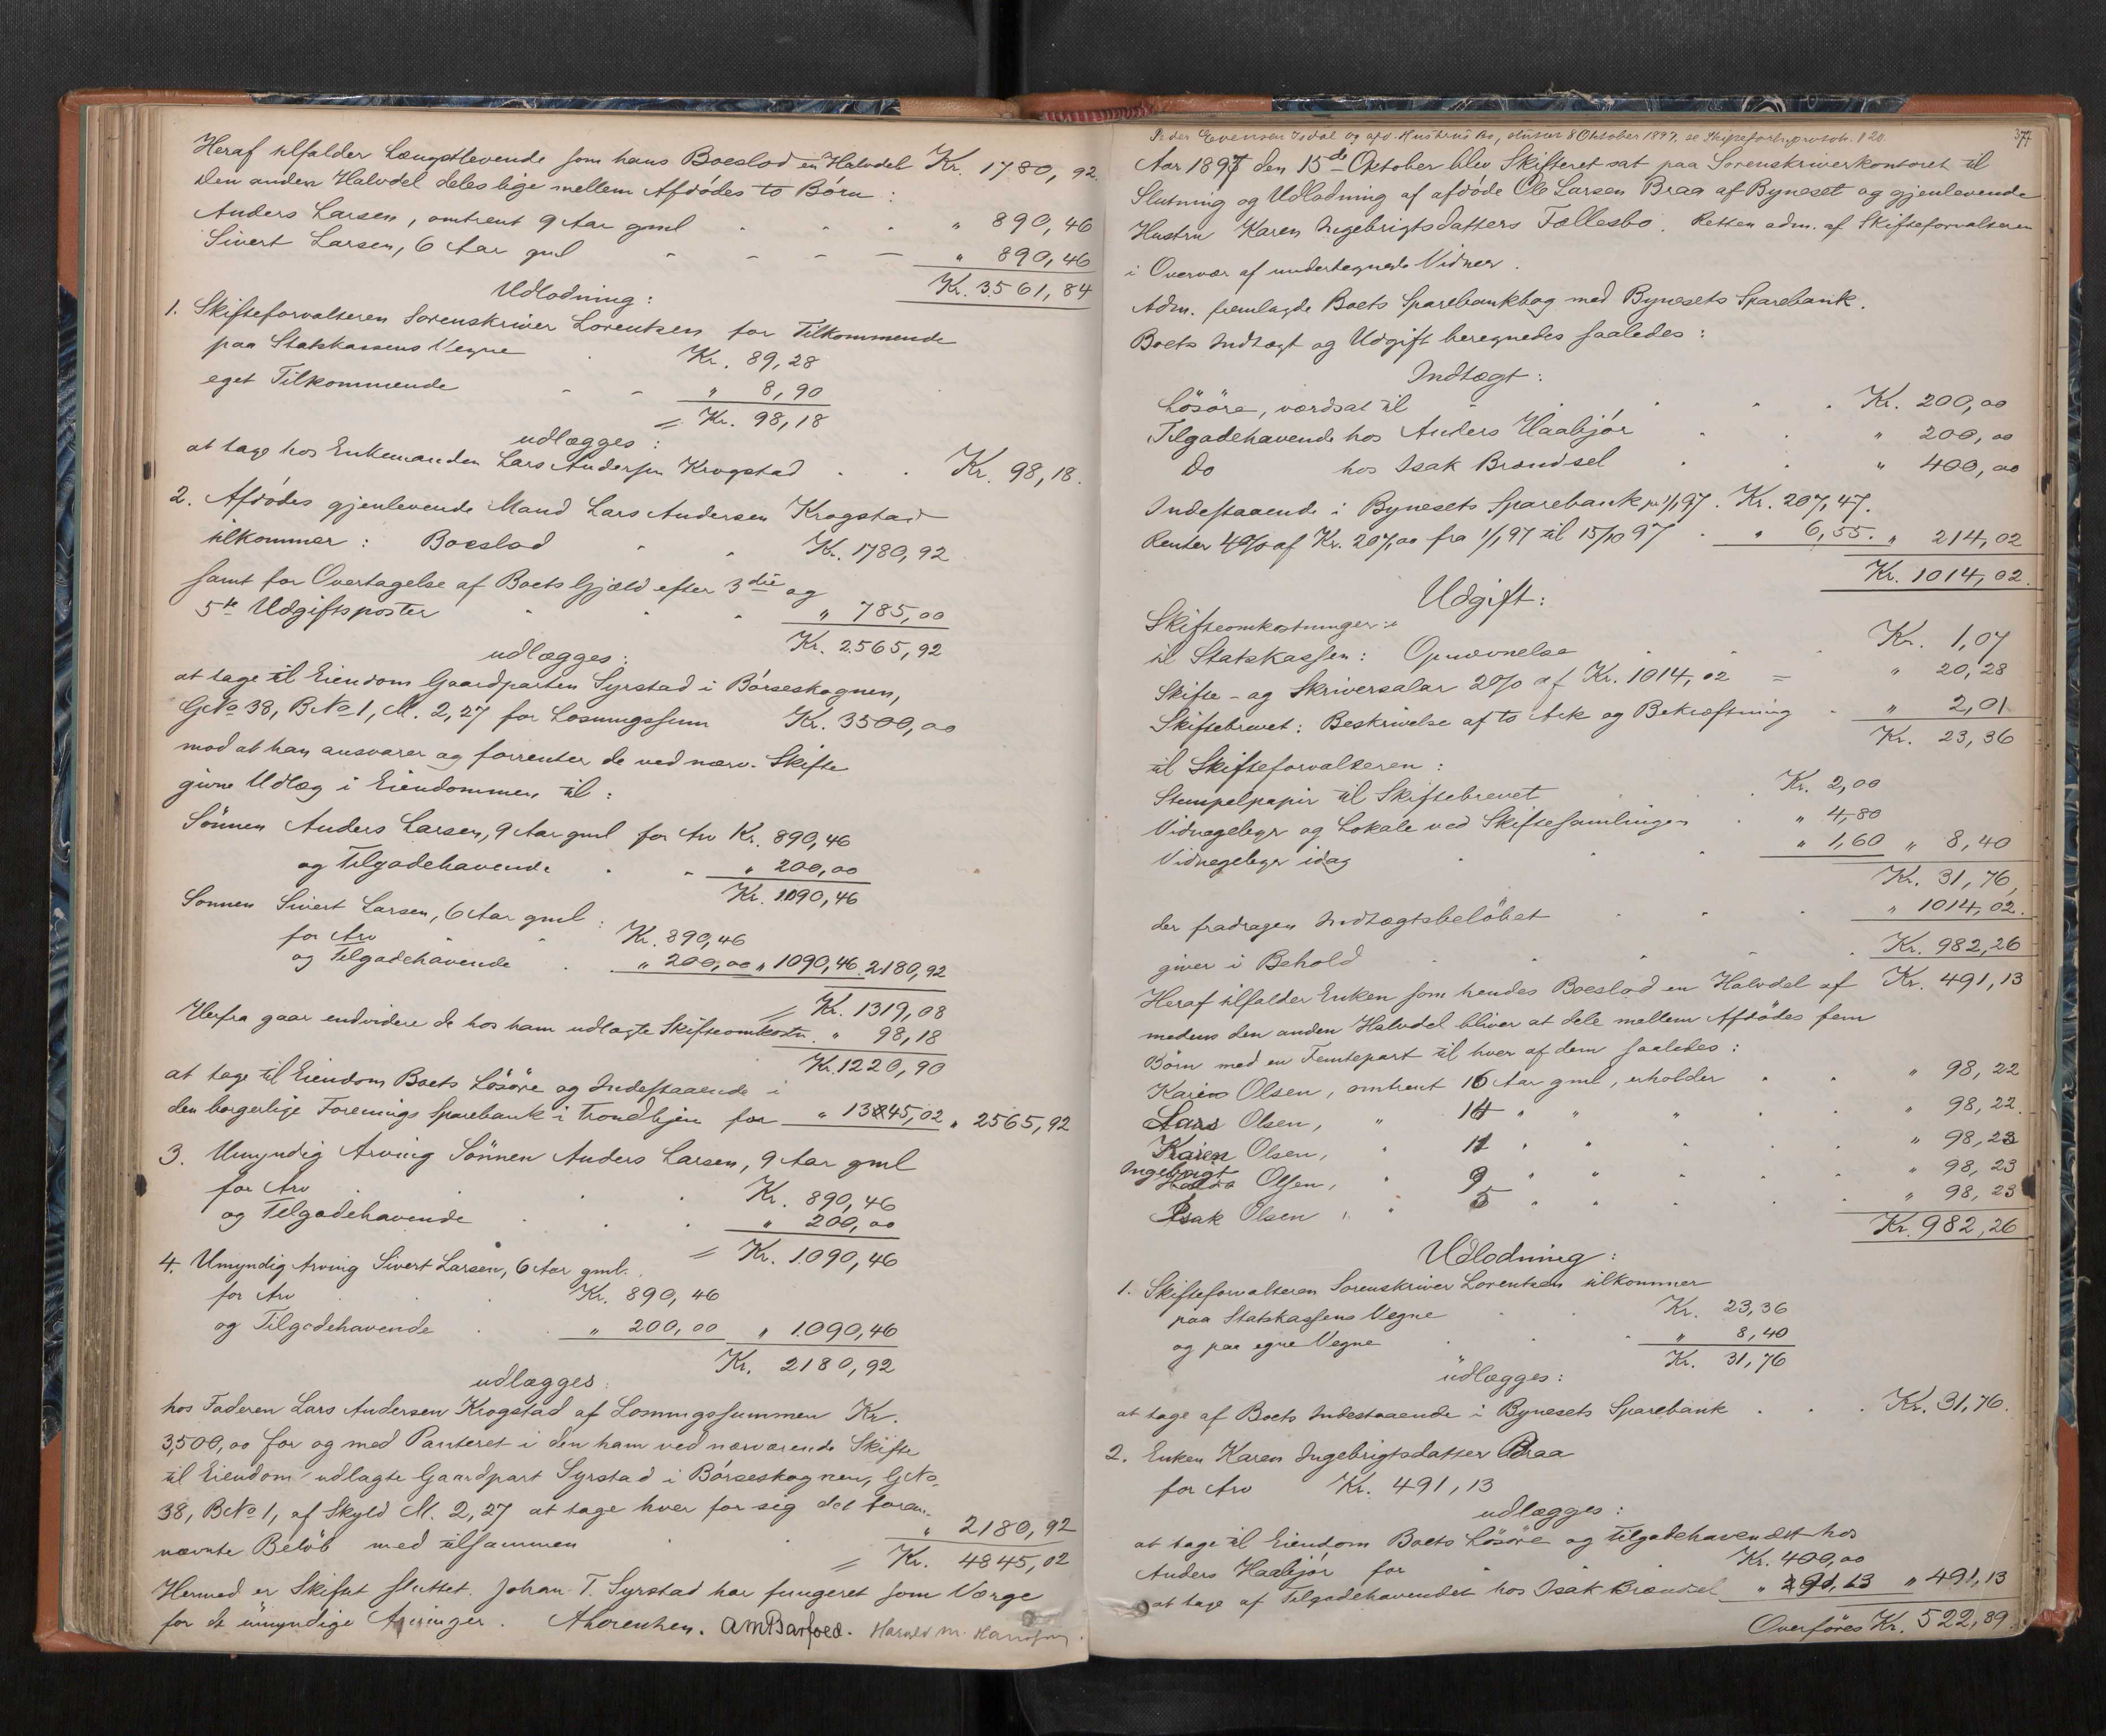 Heraf tilfalder Længstlevende som hans Boeslod en Halvdel Kr. 1780,92.
Den anden Halvdel deles lige mellem Afdödes to Börn:
Anders Larsen, omtrent 9 Aar gml " 890,46
Sivert Larsen, 6 Aar gml " 890,46
Kr. 3561,84
Udlodning:
1. Skifteforvalteren Sorenskriver Lorentzen for Tilkommende
paa Statskassens Vegne Kr. 89,28
eget Tilkommende " 8,90
= Kr. 98,18
udlægges:
at tage hos Enkemanden Lars Andersen Krogstad Kr. 98,18.
2. Afdödes gjenlevende Mand Lars Andersen Krogstad
tilkommer: Boeslod Kr. 1780,92
samt for Overtagelse af Boets Gjæld efter 3die og
5te Udgiftsposter " 785,00
Kr. 2565,92
udlægges:
at tage til Eiendom Gaardparten Syrstad i Börseskognen,
GNo 38, BNo 1, M. 2,27 for Losningssum Kr. 3500,00
mod at han ansvarer og forrenter de ved nærv. Skifte
givne Udlæg i Eiendommen til:
Sönnen Anders Larsen, 9 Aar gml for Arv Kr. 890,46
og Tilgodehavende " 200,00
Kr. 1090,46
Sönnen Sivert Larsen, 6 Aar gml:
for Arv Kr. 890,46
og Tilgodehavende " 200,00 " 1090,46. 2180,92
= Kr. 1319,08
Herfra gaar endvidere de hos ham udlagte Skifteomkostn. " 98,18
Kr. 1220,90
at tage til Eiendom Boets Lösöre og Indestaaende i
den borgerlige Forenings Sparebank i Trondhjem for " 1345,02 " 2565,92
3. Umyndig Arving Sönnen Anders Larsen, 9 Aar gml
for Arv Kr. 890,46
og Tilgodehavende " 200,00
= Kr. 1090,46
4. Umyndig Arving Sivert Larsen, 6 Aar gml.
for Arv Kr. 890,46
og Tilgodehavende " 200,00 " 1090,46
Kr. 2180,92
udlægges:
hos Faderen Lars Andersen Krogstad af Losningssummen Kr.
3,500,00 for og med Panteret i den ham ved nærværende Skifte
til Eiendom udlagte Gaardpart Syrstad i Börseskognen, GNo
38, BNo 1, af Skyld M. 2,27 at tage hver for sig det foran-
nævnte Belöb med tilsammen " 2180,92
= Kr. 4845,02
Hermed er Skiftet sluttet. Johan T. Syrstad har fungeret som Værge
for de umyndige Arvinger. ALorentzen. AMBarfoed. Harald M. Hansen.
Peder Evensen Isdal og afd. Hustrus Bo, sluttet 8 Oktober 1897, se Skifteforh.protok. 820.
377
Aar 1897 den 15de Oktober blev Skifteret sat paa Sorenskriverkontoret til
Slutning og Udlodning af afdöde Ole Larsen Braa af Byneset og gjenlevende
Hustru Karen Ingebrigtsdatters Fællesbo. Retten adm. af Skifteforvalteren
i Overvær af undertegnede Vidner.
Adm. fremlagde Boets Sparebankbog med Bynesets Sparebank.
Boets Indtægt og Udgift beregnedes saaledes:
Indtægt:
Lösöre, værdsat til Kr. 200,00
Tilgodehavende hos Anders Haabjör " 200,00
Do hos Isak Brændsel " 400,00
Indestaaende i Bynesets Sparebank pr 1/1 97. Kr. 207,47.
Renter 4% af Kr. 207,00 fra 1/1 97 til 15/10 97 " 6,55. " 214,02
Kr. 1014,02.
Udgift:
Skifteomkostninger:
til Statskassen: Opnævnelse Kr. 1,07
Skifte- og Skriversalar 2% af Kr. 1014,02 = " 20,28
Skiftebrevet: Beskrivelse af to Ark og Bekræftning " 2,01
Kr. 23,36
til Skifteforvalteren:
Stempelpapir til Skiftebrevet Kr. 2,00
Vidnegebyr og Lokale ved Skiftesamlingen " 4,80
Vidnegebyr idag " 1,60 " 8,40
Kr. 31,76,
der fradragen Indtægtsbelöbet " 1014,02.
giver i Behold Kr. 982,26
Heraf tilfalder Enken som hendes Boeslod en Halvdel af Kr. 491,13
medens den anden Halvdel bliver at dele mellem Afdödes fem
Börn med en Femtepart til hver af dem saaledes:
Olsen, omtrent 16 Aar gml, erholder " 98,22
Lars Olsen, " 14 " " " 98,22.
Karen Olsen, " 11 " " " 98,23
Ingebrigt Olsen, " 9 " " " 98,23
Isak Olsen " " 5 " " " 98,23
Kr. 982,26
Udlodning:
1. Skifteforvalteren Sorenskriver Lorentzen tilkommer
paa Statskassens Vegne Kr. 23,36
og paa egne Vegne " 8,40
Kr. 31,76
udlægges:
at tage af Boets Indestaaende i Bynesets Sparebank Kr. 31,76.
2. Enken Karen Ingebrigtsdatter Braa
for Arv Kr. 491,13
udlægges:
at tage til Eiendom Boets Lösöre og Tilgodehavendet hos
Anders Haabjör for Kr. 400,00
at tage af Tilgodehavendet hos Isak Brændsel " 91,13 " 491,13
Overföres Kr. 522,89.